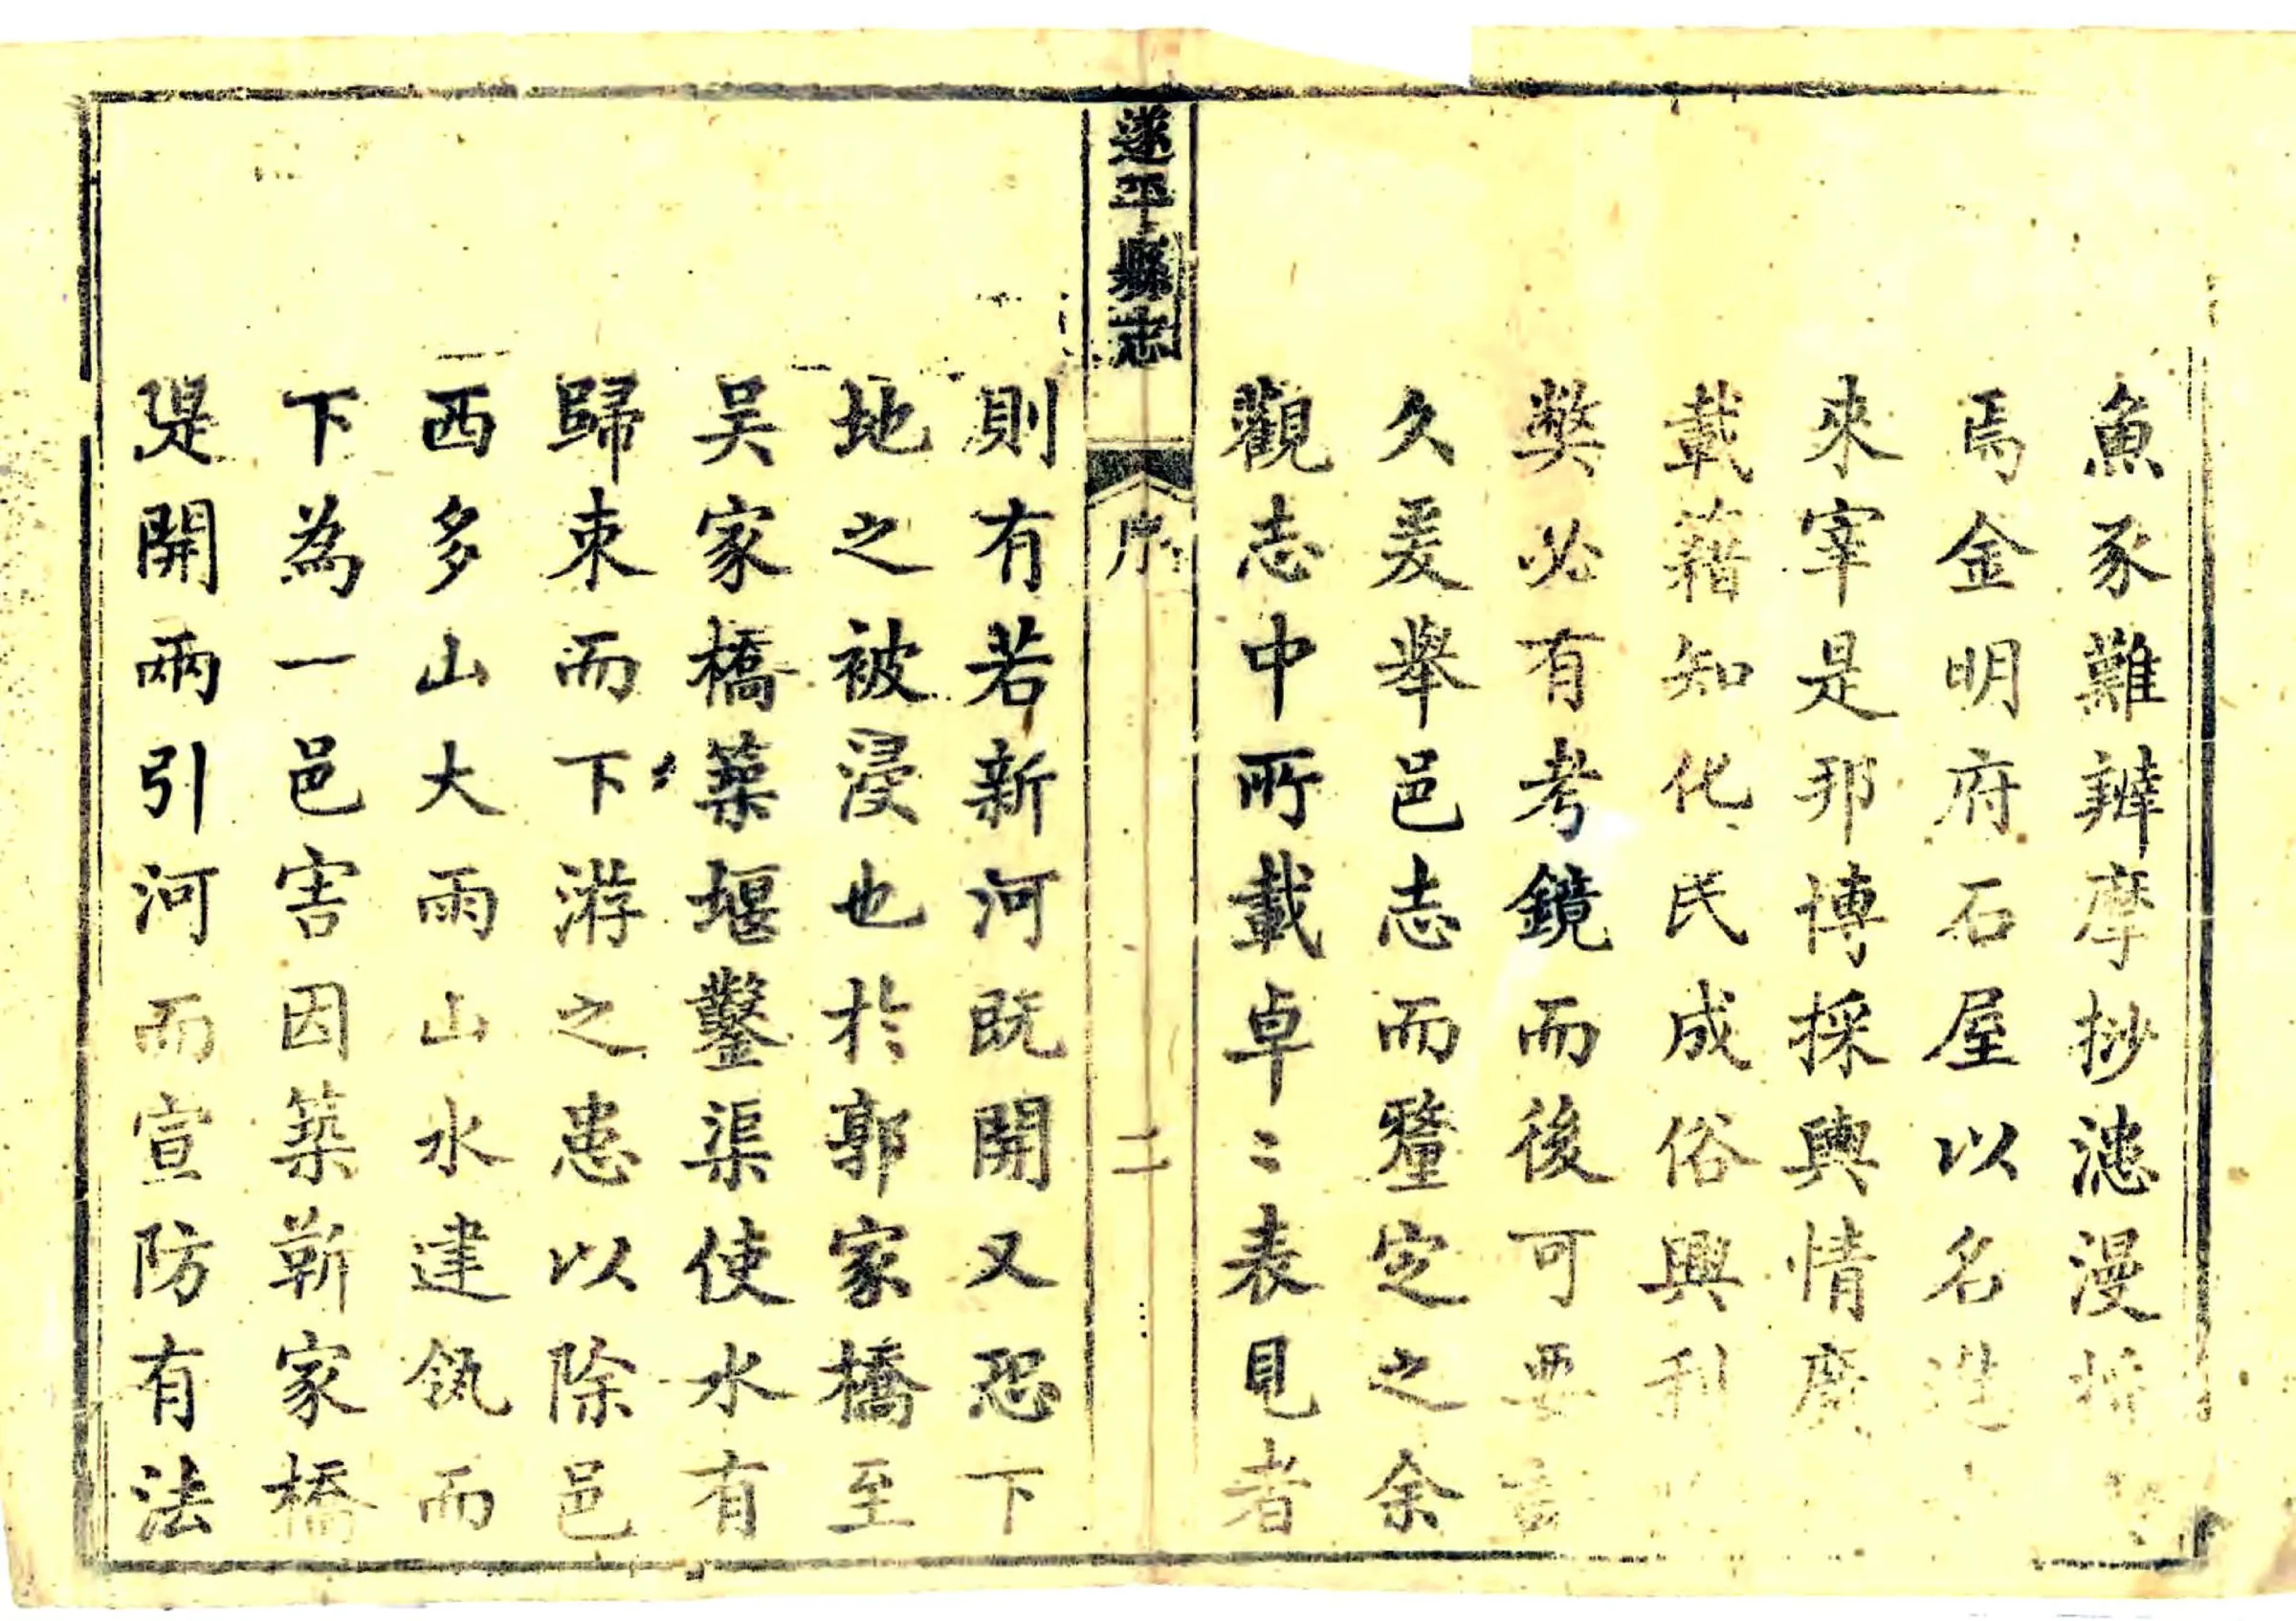 魚豕難辨摩抄漶漫
焉金明府石屋以名進
來宰是邦博採輿情廣
載藉知化民成俗興利
弊必有考鏡而後可要
久爰舉邑志而釐定之余
觀志中所載卓〻表見者
遂平縣志
序
二
則有若新河既開又恐下
地之被浸也於郭家橋至
吴家橋築堰鑿渠使水有
歸束而下游之患以除邑
西多山大雨山水建瓴而
下為一邑害因築靳家橋
堤開兩引河而宣防有法